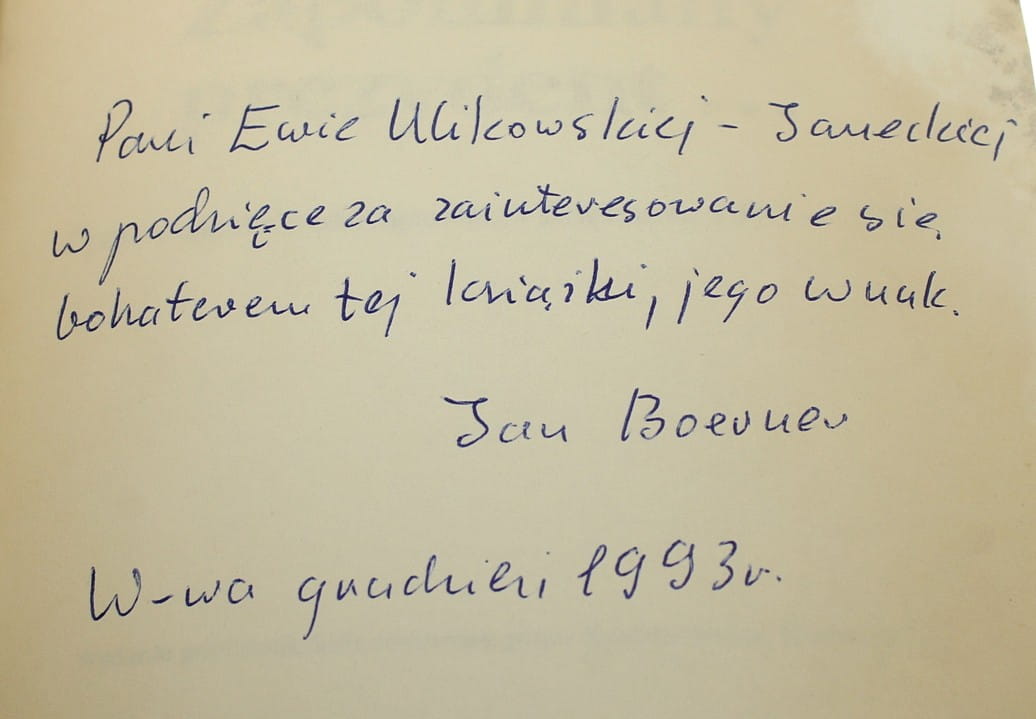 Pani Ewie Ulikowskiej - Janeckiej
w podzięce za zainteresowanie się
bohaterem tej książki, jego wnuk.
Jan Boerner
W-wa grudzień 1993r.